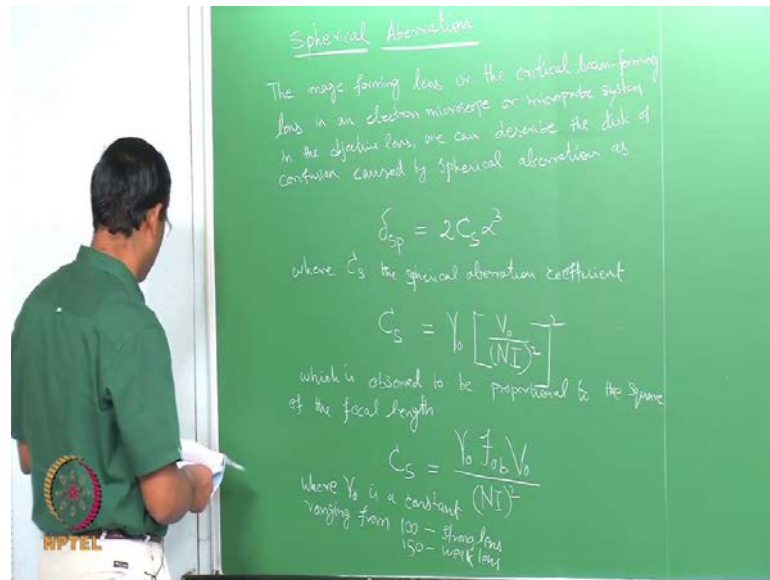 Spherical Aberration
The image forming lens or the critical beam-forming
lens in an electron microscope or microprobe system
in the objective lens, we can describe the disk of
confusion caused by spherical aberration as
δsp = 2Csα³
where Cs the spherical aberration coefficient
Cs = γ₀ [V₀/(NI)²]²
which is observed to be proportional to the square
of the focal length
Cs = γ₀ f_ob V₀/(NI)²
where γ₀ is a constant
ranging from 100 – strong lens
150 – weak lens
NPTEL